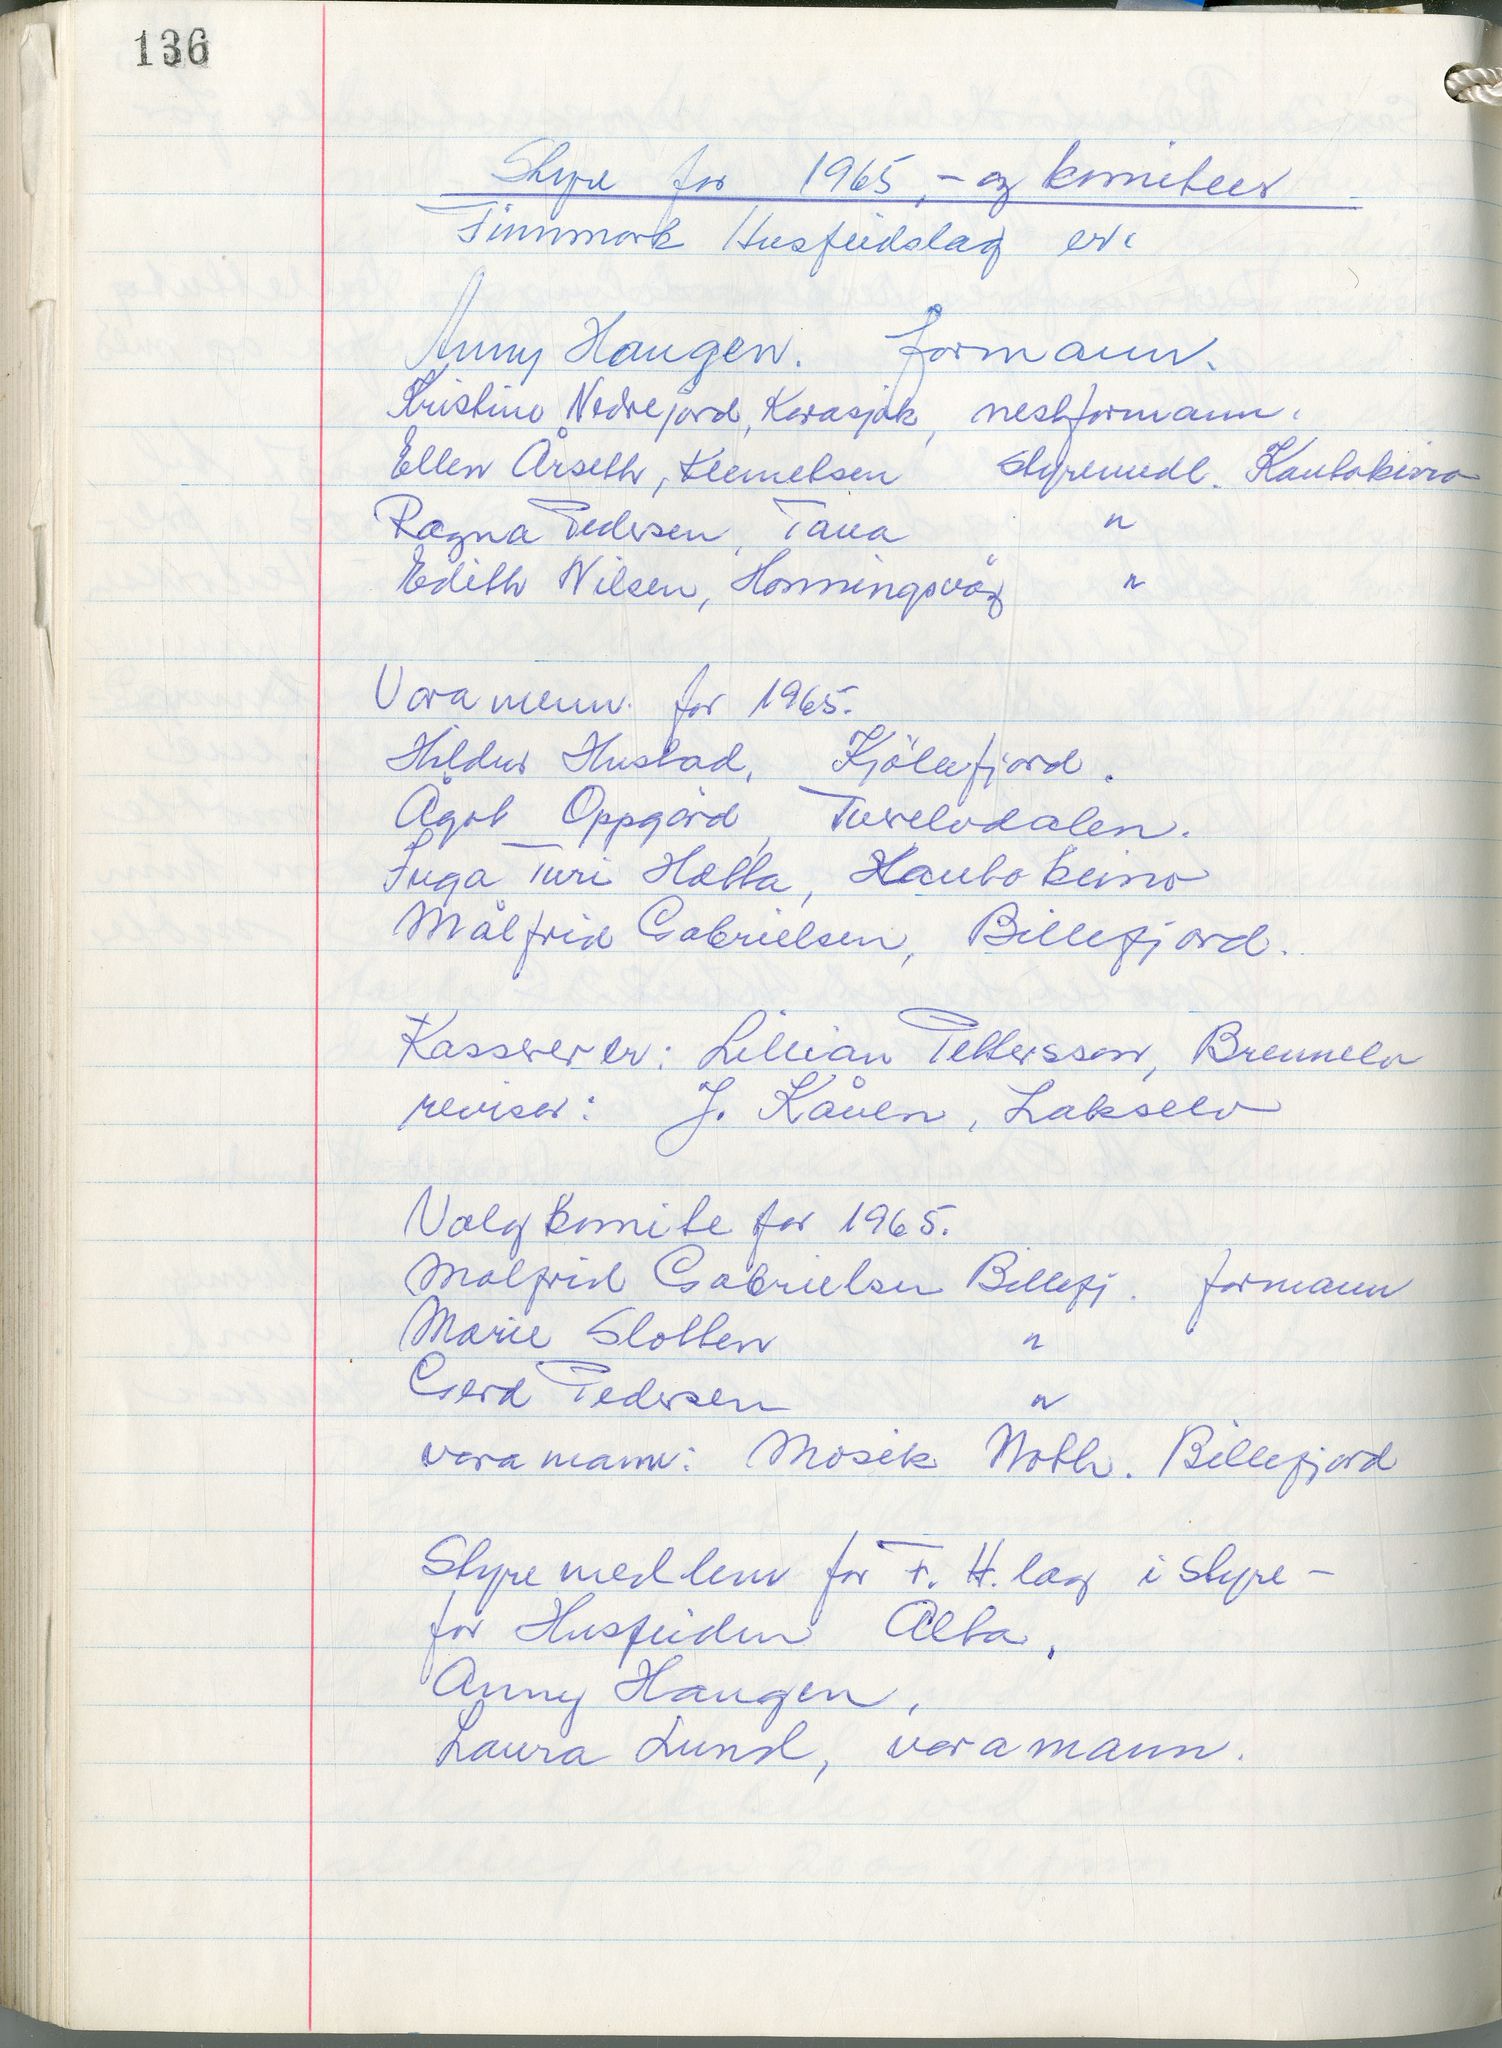 136
Styre for 1965, - og komiteer
Finnmark Husflidslag er:
Anny Haugen. formann.
Kristine Nedrejord, Karasjok, nestformann.
Ellen Årseth, Klemetsen styremedl. Kautokeino
Ragna Pedersen, Tana "
Edith Nilsen, Honningsvåg "
Varamenn for 1965.
Hildur Hustad, Kjöllefjord.
Ågot Oppgård, Tverelvdalen.
Inga Turi Hætta, Kautokeino
Målfrid Gabrielsen, Billefjord.
Kasserer er: Lillian Pettersson, Brennelv
revisor: J. Kåven, Lakselv
Valgkomite for 1965.
Målfrid Gabrielsen Billefj. formann
Marie Slotten "
Gerd Pedersen "
varamann: Mosik Noth. Billefjord
Styremedlem for F. H. lag i styre-
for Husfliden Alta,
Anny Haugen,
Laura Lund, varamann.